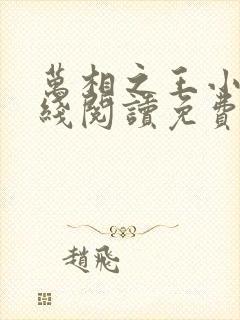 萬相之王小
綫閱讀免費
趙飛